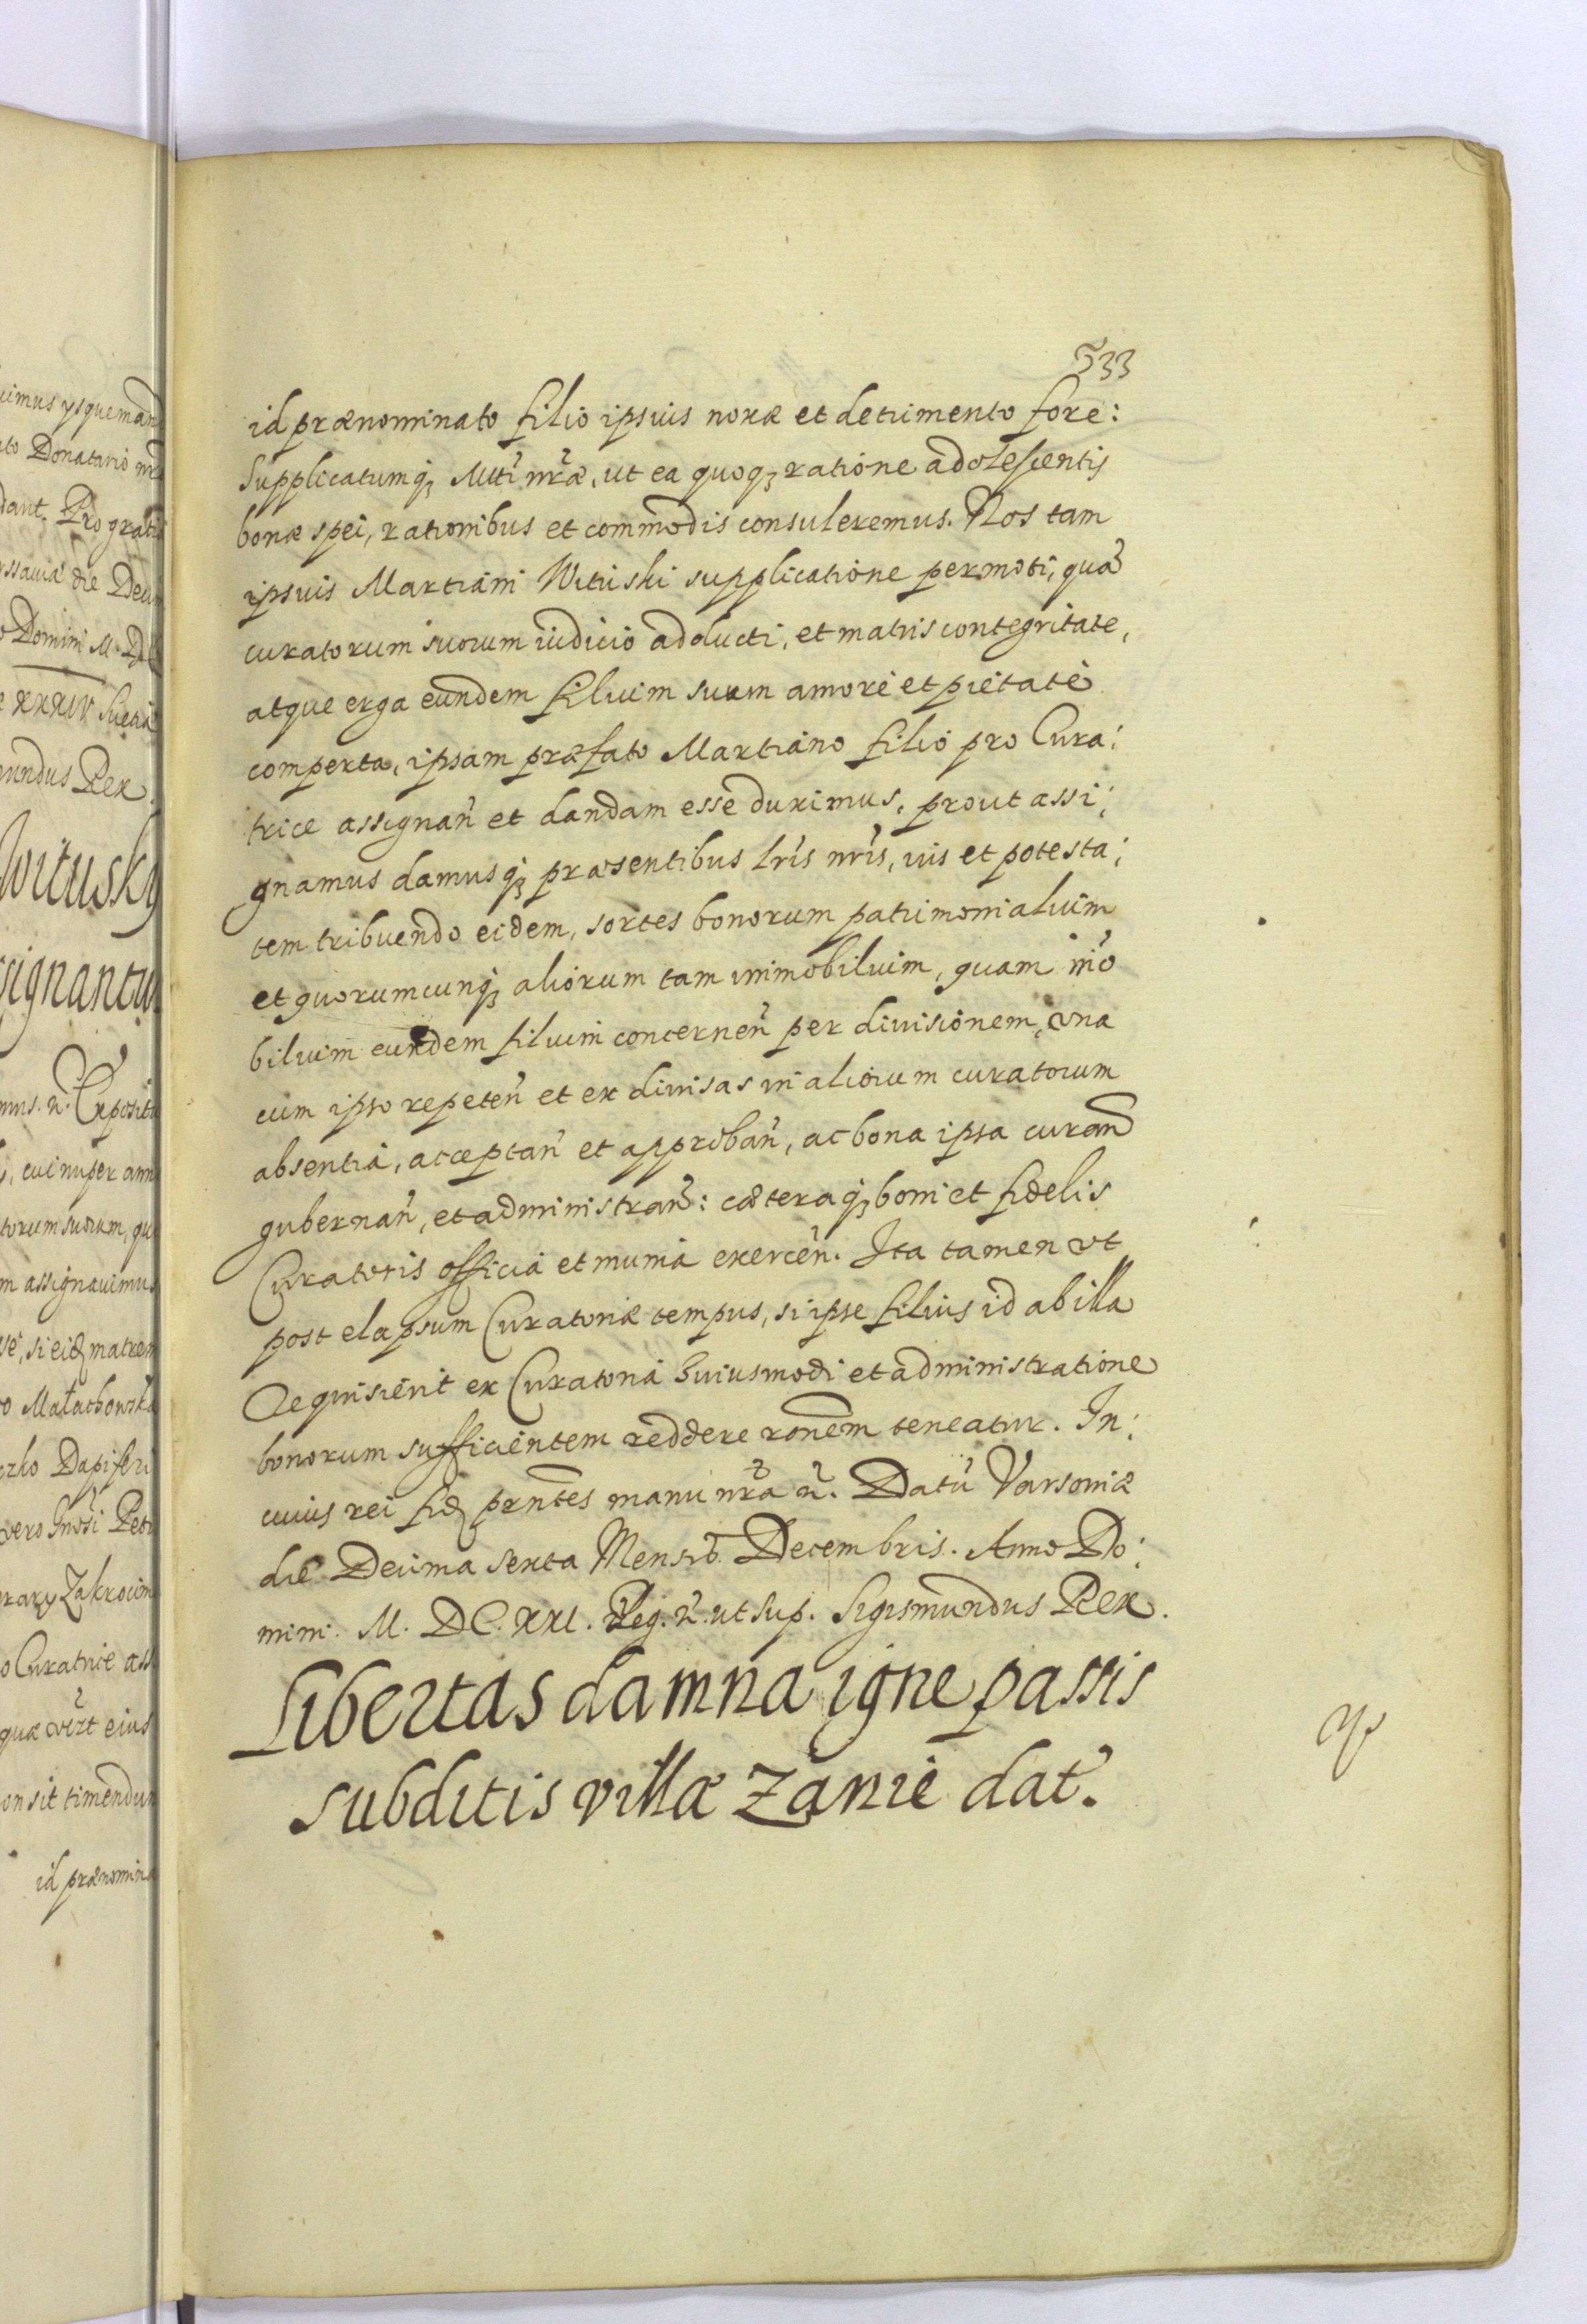 533
id prænominato filio ipsius noxæ et detrimento fore:
Supplicatumq3 Mtti nr̃æ, ut ea quoq3 ratione adolescentis
bonæ spei, rationibus et commodis consuleremus. Nos tam
ipsius Martiani Wituski supplicatione permoti, quã
curatorum suorum iudicio adducti, et matris contegritate,
atque erga eundem filium suum amore et pietate
comperta, ipsam præfato Martiano filio pro Cura:
trice assignan̄ et dandam esse duximus, prout assi:
gnamus damusq3 præsentibus lr̃is nr̃is, ius et potesta:
tem tribuendo eidem, sortes bonorum patrimonialium
et quorumcunq3 aliorum tam immobilium, quam mõ
bilium eundem filium concernen̄ per diuisionem, vna
cum ipso repeten̄ et ex diuisas in aliorum curatorum
absentia, acceptan̄ et approban̄, ac bona ipsa curan̄
gubernan̄, et administran̄: cæteraq3 boni et fidelis
Curatoris officia et munia exercen̄. Ita tamen vt
post elapsum Curatoriæ tempus, si ipse filius id ab illa
requisierit ex Curatoria huiusmodi et administratione
bonorum sufficientem reddere ronem̄ teneatur. In:
cuius rei fid prntes manu nr̃a n̄. Datū Varsouiæ
die Decima sexta Mensis Decembris. Anno Do:
mini. M. DC. XXI. Reg. n̄. ut sup. Sigismundus Rex.
Libertas damna igne passis
subditis villæ Zanie dat̄.
uimus ysquemand
to Donatario nr̃
dant. Pro gratis
ssauiæ die Decim
o Domini M. D
XXXIV Sueciæ
mundus Rex.
Witusky
signantur
mus. n̄. Exposit
, cui nuper ann
torum suorum, qu
m assignauimus
se, si eid matrem
o Małachowska
czko Dapiferi
vero Petr
rary Zakrocim
o Curatrice ass
quæ eius
on sit timendum
id prænomina